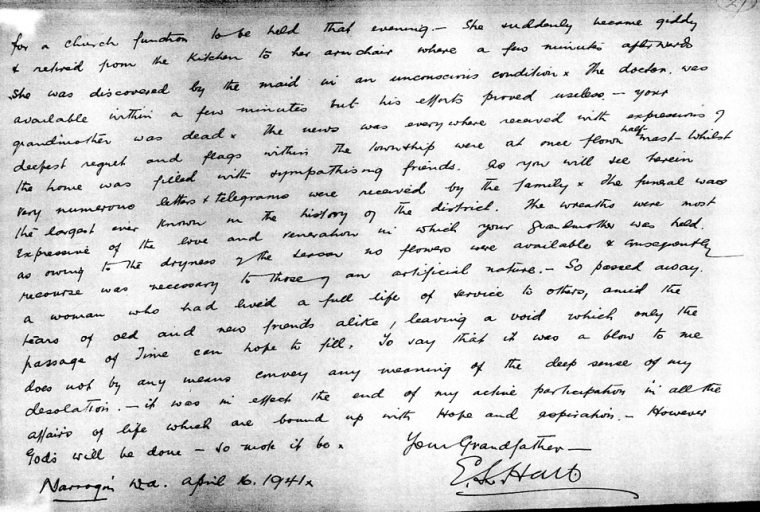 for a church function to be held that evening.— She suddenly became giddy
& retired from the kitchen to her armchair where a few minutes afterwards
she was discovered by the maid in an unconscious condition x The doctor was
available within a few minutes but his efforts proved useless — your
grandmother was dead x The news was everywhere received with expressions of
deepest regret and flags within the township were at once flown half mast — whilst
the home was filled with sympathising friends. As you will see herein
very numerous letters & telegrams were received by the family x The funeral was
the largest ever known in the history of the district. The wreaths were most
expressive of the love and veneration in which your Grandmother was held.
as owing to the dryness of the season no flowers were available & consequently
recourse was necessary to those of an artificial nature.— So passed away
a woman who had lived a full life of service to others, amid the
tears of old and new friends alike, leaving a void which only the
passage of Time can hope to fill. To say that it was a blow to me
does not by any means convey any meaning of the deep sense of my
desolation.— it was in effect the end of my active participation in all the
affairs of life which are bound up with Hope and aspiration.— However
God's will be done — So mote it be x
Your Grandfather—
E. L. Hart
Narrogin W.a. April 16. 1941x